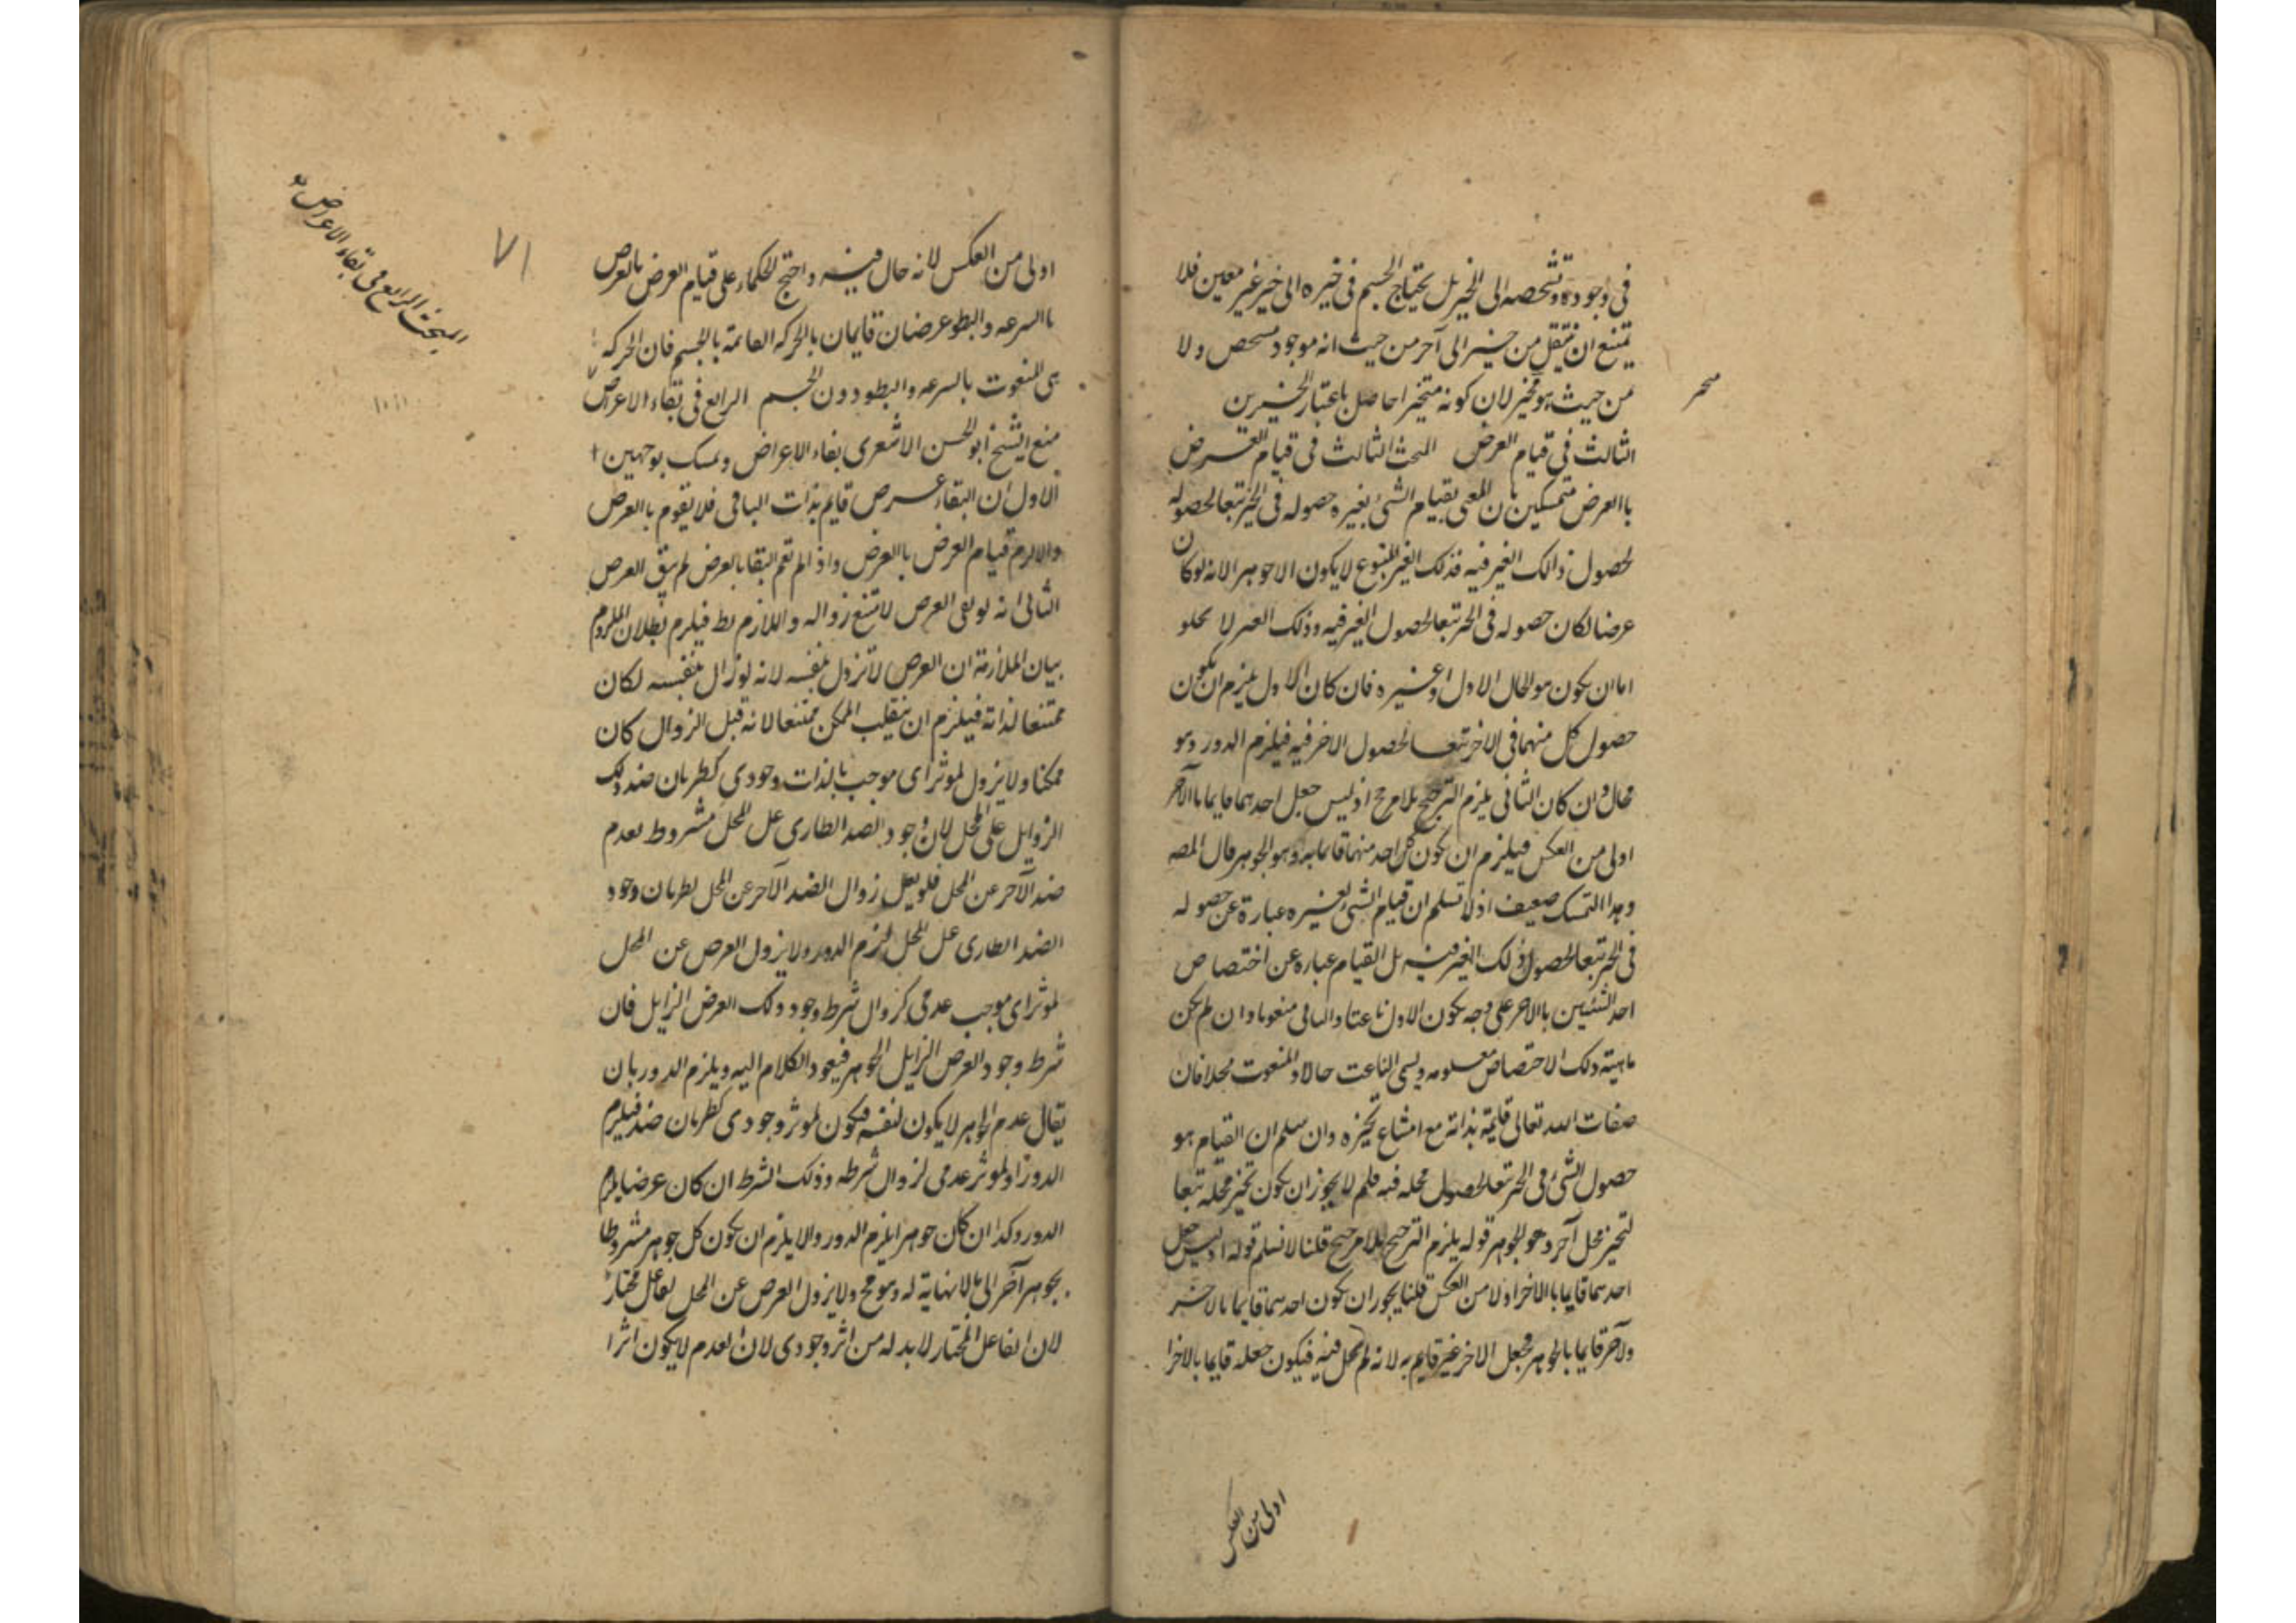 فى وجوده وتشخصه الى الحيز بل يحتاج الجسم فى حيزه الى حيز غير معين فلا
يمتنع ان ينتقل من حيز الى آخر من حيث انه موجود مشخص ولا
من حيث هو متحيز لان كونه متحيزا حاصل باعتبار الحيزين
الثالث فى قيام العرض المبحث الثالث فى قيام العرض
باالعرض متمسكين بان المعنى بقيام الشئ بغيره حصوله فى الحيز تبعا لحصوله
لحصول ذالك الغير فيه فذلك الغير المتبوع لا يكون الا جوهرا لانه لو كان
عرضا لكان حصوله فى الحيز تبعا لحصول الغير فيه وذلك الغير لا يخلو
اما ان يكون هو الحال الاول او غيره فان كان الاول يلزم ان يكون
حصول كل منهما فى الاخر تبعا لحصول الاخر فيه فيلزم الدور وهو
محال وان كان الثانى يلزم الترجيح بلا مرجح اذ ليس جعل احدهما قايما باالآخر
اولى من العكس فيلزم ان يكون كل احد منهما قايما به وهو الجوهر قال المصه
وهذا التمسك ضعيف اذ لا نسلم ان قيام الشئ بغيره عبارة عن حصوله
فى الحيز تبعا لحصول ذلك الغير فيه بل القيام عباره عن اختصاص
احد الشئيين باالاخر على وجه يكون الاول ناعتا والثانى منعوتا وان لم يكن
ماهية ذلك الاختصاص معلومه ويسمى الناعت حالا والمنعوت محلا فان
صفات الله تعالى قايمة بذاته مع امتناع تحيزه وان سلم ان القيام هو
حصول الشئ فى الحيز تبعا لحصول محله فيه فلم لا يجوز ان يكون تحيز محله تبعا
لتحيز محل آخر وهو الجوهر قوله يلزم الترجيح بلا مرجح قلنا لا نسلم قوله اذ ليس جعل
احدهما قايما باالاخر اولا من العكس قلنا يجوز ان يكون احدهما قايما بالاخر
ولآخر قايما باالجوهر فجعل الاخر غير قايم به لانه لم يحل فيه فيكون جعله قايما بالاخرا
اولى من العكس
اولى من العكس لانه حال فيه واحتج الحكماء على قيام العرض بالعرض
باالسرعه والبطو عرضان قايمان بالحركه القائمة بالجسم فان الحركه
هى المنعوت بالسرعه والبطو دون الجسم الرابع فى بقاء الاعراض
منع الشيخ ابو الحسن الاشعرى بقاء الاعراض وتمسك بوجهين
الاول ان البقاء عرض قايم بذات الباقى فلا يقوم باالعرض
والا لزم قيام العرض باالعرض واذا لم تقم البقا بالعرض لم يبق العرض
الثانى انه لو بقى العرض لامتنع زواله واللازم بط فيلزم بطلان الملزوم
بيان الملازمة ان العرض لا تزول بنفسه لانه لو زال بنفسه لكان
ممتنعا لذاته فيلزم ان ينقلب الممكن ممتنعا لانه قبل الزوال كان
ممكنا ولا يزول لموثر اى موجب باالذات وجودى كطريان ضد ذلك
الزوايل على المحل لان وجود الضد الطارى على المحل مشروط بعدم
ضد الآخر عن المحل فلو يعل زوال الضد الآخر عن المحل لطريان وجود
الضد الطارى على المحل لزم الدور ولا يزول العرض عن المحل
لموثر اى موجب عدمى كزوال شرط وجود ذلك العرض الزايل فان
شرط وجود العرض الزايل الجوهر فيعود الكلام اليه ويلزم الدور بان
يقال عدم الجوهر لا يكون لنفسه فيكون لموثر وجودى كطريان ضد فيلزم
الدور او لموثر عدمى لزوال شرطه وذلك الشرط ان كان عرضا يلزم
الدور وكذا ان كان جوهرا يلزم الدور والا يلزم ان يكون كل جوهر مشروطا
بجوهر آخر الى مالا نهاية له وهو مح ولا يزول العرض عن المحل لفاعل مختار
لان الفاعل المختار لا بد له من اثر وجودى لان العدم لا يكون اثرا
البحث الرابع فى بقاء الاعراض
٧١